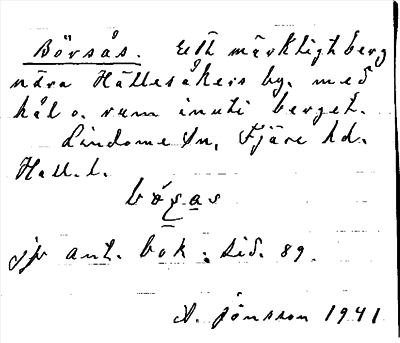 Börsås. Ett märkligt berg
nära Hällesåkers by. med
hål o. rum inuti berget.
Lindome sn, Fjäre hd.
Hall. l.
jv ant. bok. sid. 89.
A. Jönsson 1941